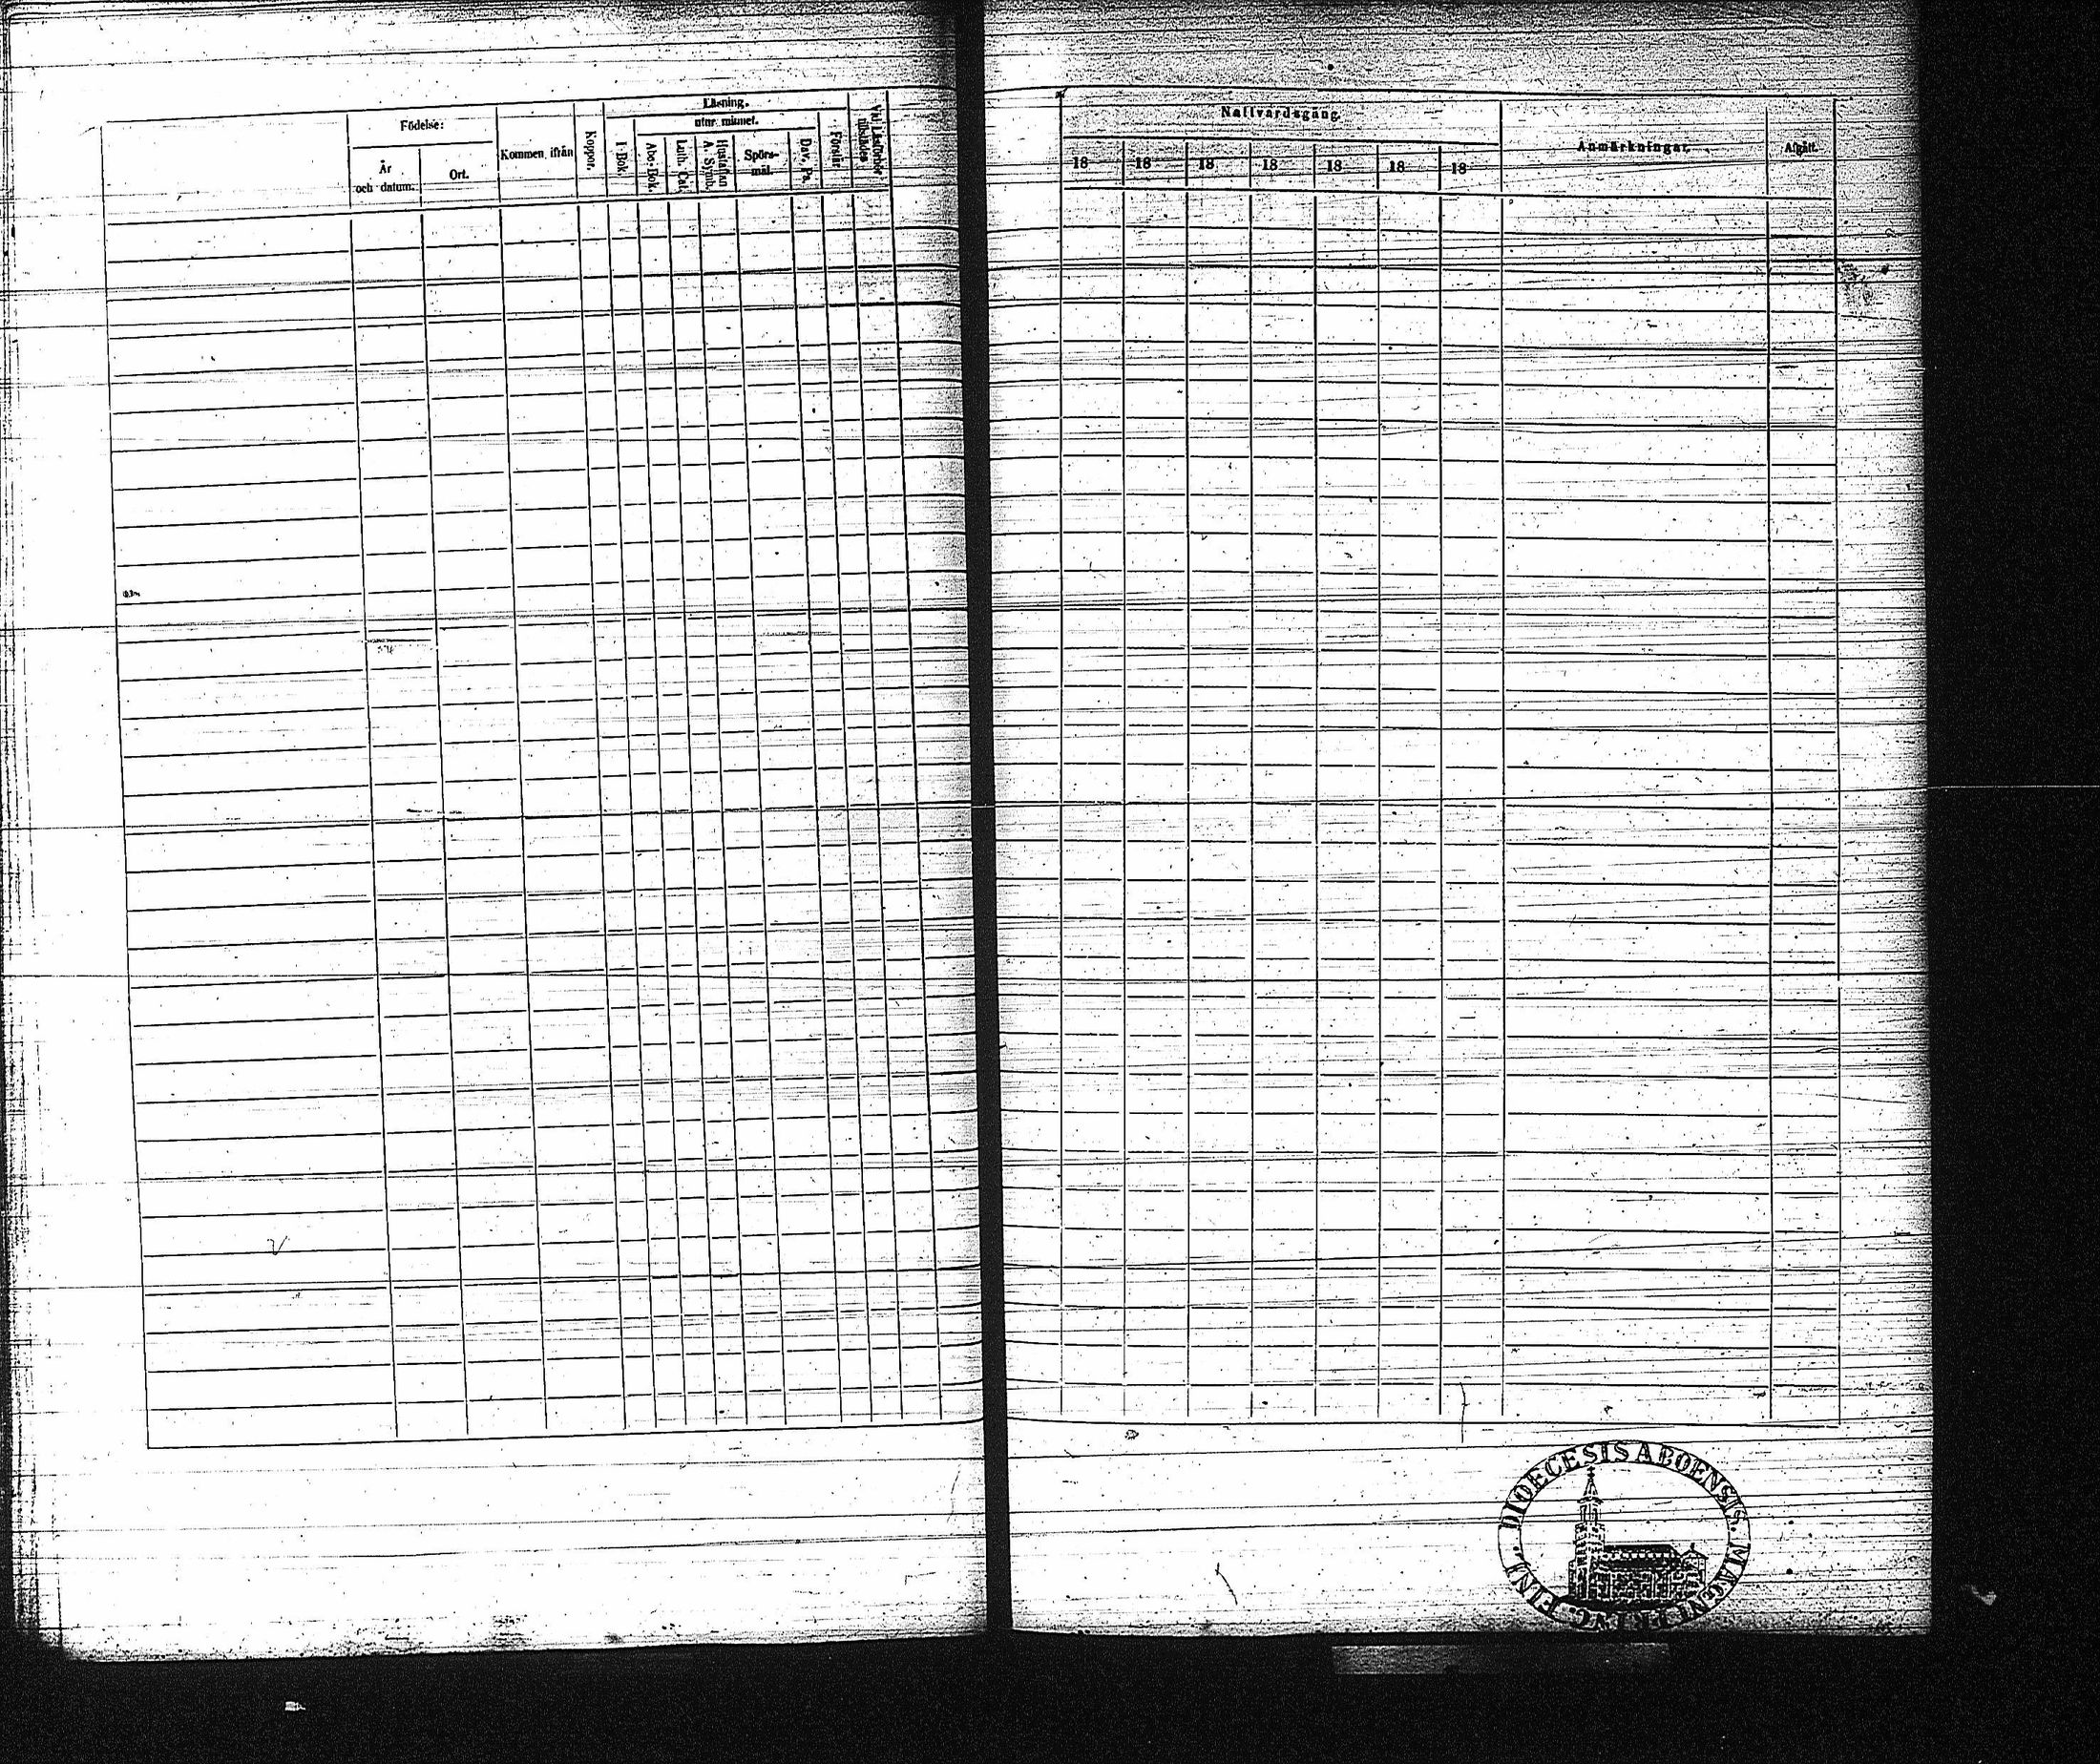 Födelse:
År
och datum.
Ort.
Kommen ifrån
Koppor.
Läsning.
utur minnet.
I Bok.
Abc-Bok.
Luth. Cat.
Hustaflan
A. Symb.
Spörs-
mål.
Dav. Ps.
Förstår.
Vid Läsförhör
Nattvardsgång.
18 18 18 18 18 18 18
Anmärkningar.
Afgått.
DIOECESIS ABOENSIS. MAGNI